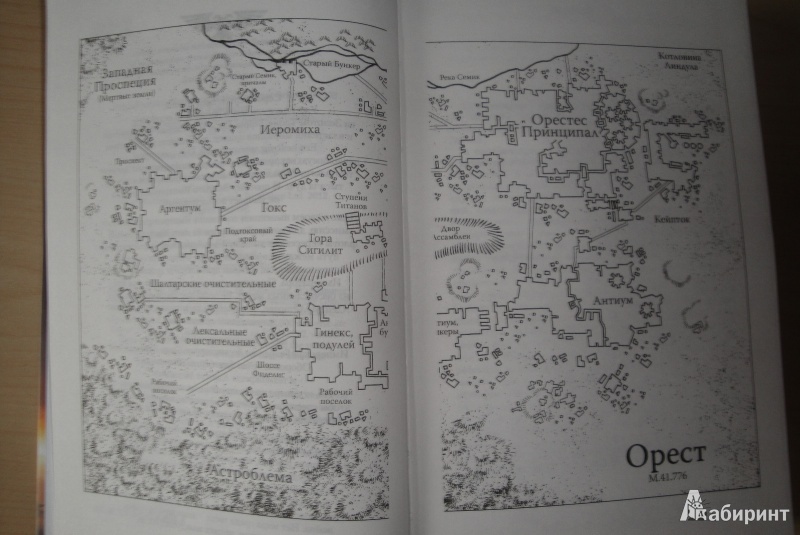 Западная
Проспеция
(Мёртвые земли)
Старый Бункер
Иеромиха
Проспект
Аргентум
Гокс
Подтиповый
край
Ступени
Титанов
Гора
Сигилит
Шантарские очистительные
Лексальные
очистительные
Гинекс,
подулей
Шоссе
Фиделис
Рабочий
поселок
Рабочий
поселок
Астроблема
Река Семик
Котловина
Линдула
Орестес
Принципал
Двор
Ассамблеи
Антиум
Орест
М.41.776
Лабиринт